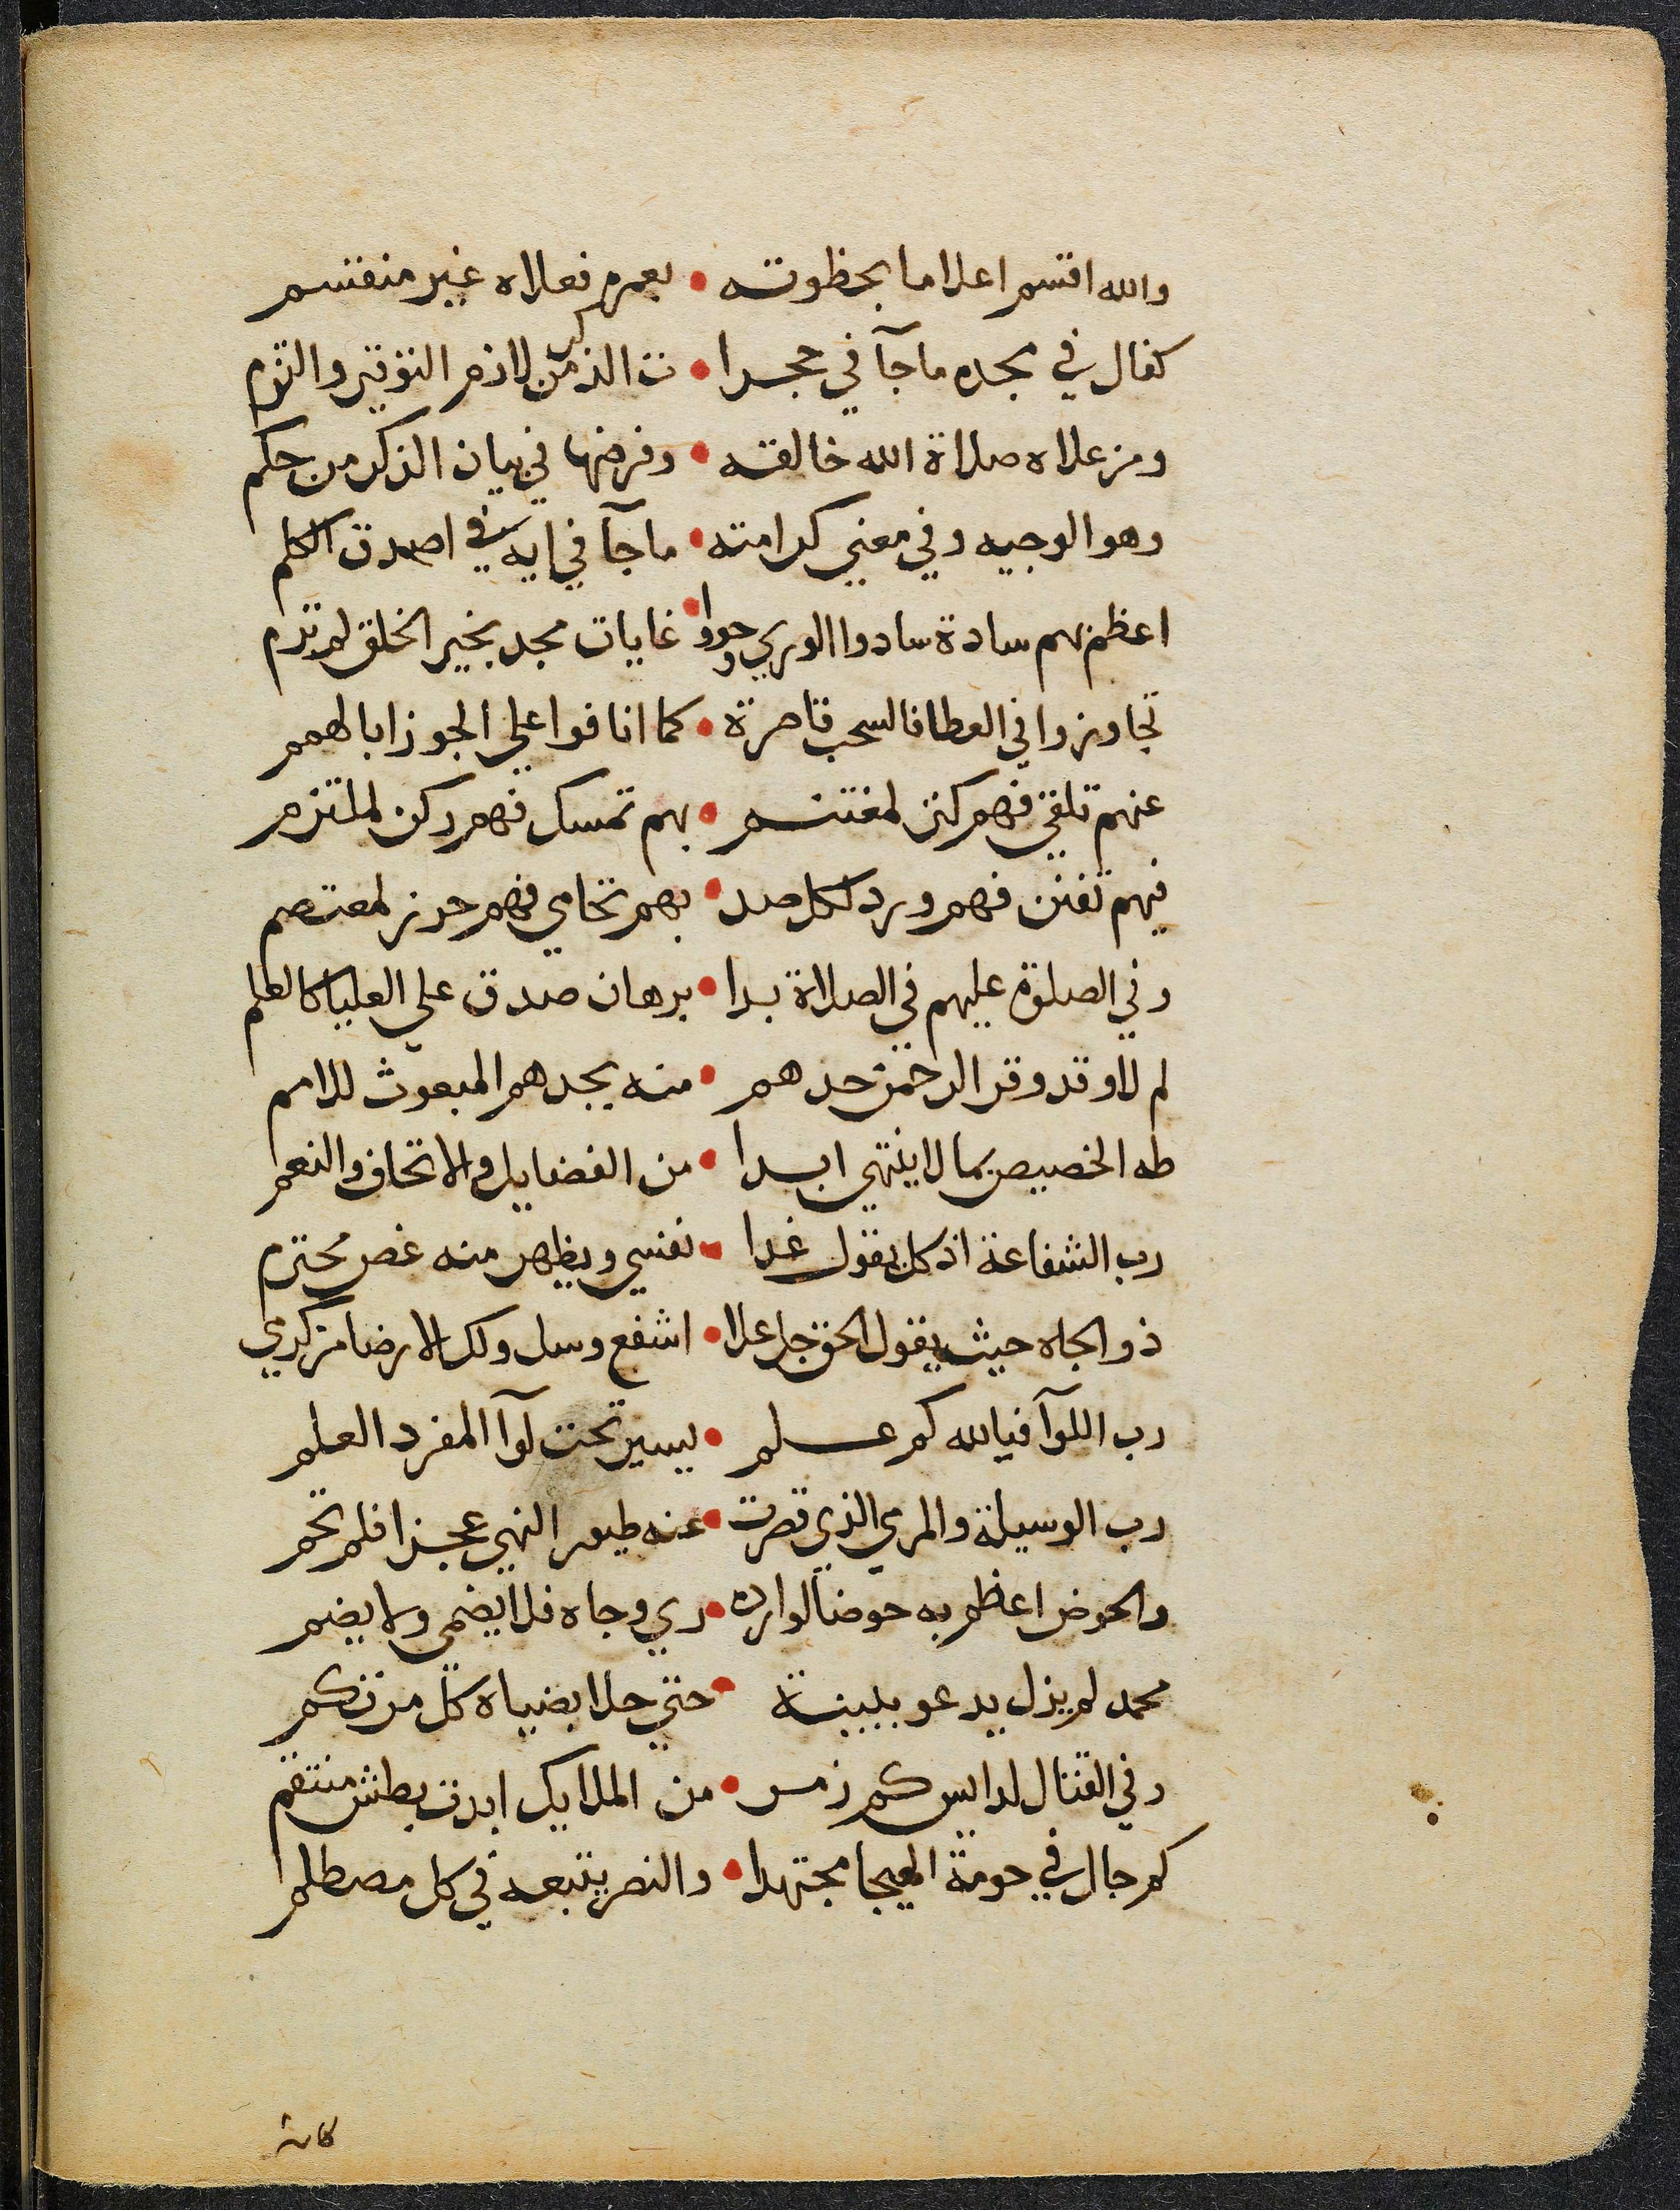 والله اقتسم اعلاما بحظوته • بعمره فعلاه غير منقتسم
كفال في مجده ماجآ في حجرا • ت الذكر من لازم التوقير والتزم
ومن علاه صلاة الله خالقه • وفرضها في بيان الذكر من حكم
وهو الوجيه وفي معني كرامته • ماجآ في ايه في اصدق الكلم
اعظم بهم سادة سادوا الوري وحووا • غايات مجد بخير الخلق لم ترم
تجاوزوا في العطا فالسحب قاصرة • كما انافوا علي الجوزا بالهمم
عنهم تلقي فهم كنز لمغتنم • بهم تمسك فهم ركن لملتزم
فيهم تفنن فهم ورد لكل صد • بهم تحامي فهم حرز لمعتصم
وفي الصلوة عليهم في الصلاة بدا • برهان صدق علي العليا كالعلم
لم لا وقد وقر الرحمن حدهم • منه بجدهم المبعوث للامم
طه الخصيص بما لا ينتهي ابدا • من الفضايل والاتحاف والنعم
رب الشفاعة اذ كل يقول غدا • نفسي ويظهر منه غض محترم
ذو الجاه حيث يقول الحق جل علا • اشفع وسل ولك الارضا من كرمي
رب اللوآ فيالله كم علم • يسير تحت لوآ المفرد العلم
رب الوسيلة والمرمي الذي قصرت • عنه طيور النهي عجزا فلم تحم
والحوض اعظم به حوضا لوارده • ري وجاه فلا يضمي ولا يضم
محمد لم يزل يدعو ببينة • حتي جلا بضياه كل مرتكم
وفي القتال لدا يس كم زمر • من الملايك ابدت بطش منتقم
كم جال في حومة الهيجا مجتهدا • والنصر يتبعه في كل مصطلم
كانه